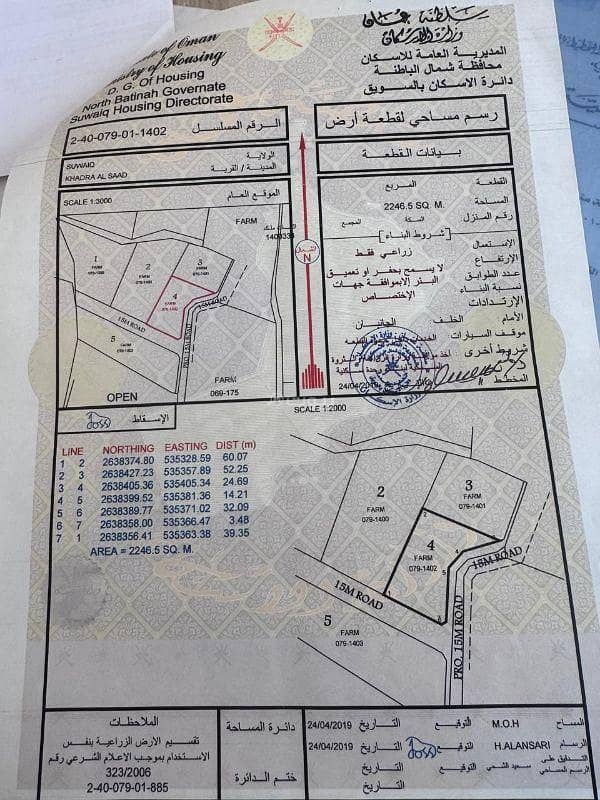 سلطنة عمان
وزارة الإسكان
المديرية العامة للاسكان
محافظة شمال الباطنة
دائرة الاسكان بالسويق
of Oman
of Housing
D. G. Of Housing
North Batinah Governate
Suwaiq Housing Directorate
رسم مساحي لقطعة أرض
الرقم المسلسل
2-40-079-01-1402
بيانات القطعة
الولاية
SUWAIQ
المدينة / القرية
KHADRA AL SAAD
القطعة
المربع
المساحة
2246.5 SQ. M.
رقم المنزل
السكة
المجمع
شروط البناء
الإستعمال
زراعي فقط
الإرتفاع
عدد الطوابق
نسبة البناء
الإرتدادات
لا يسمح بحفر او تعميق
البئر إلابموافقة جهات
الإختصاص
الأمام
الخلف
الجانبان
موقف السيارات
شروط أخرى
المخطط
24/04/2019
الموقع العام
SCALE 1:3000
FARM
1
FARM
2
FARM
3
FARM
4
FARM
079-1402
15M ROAD
15M ROAD
5
FARM
OPEN
FARM
069-175
الشمال
N
SCALE 1:2000
الإسقاط
LINE NORTHING EASTING DIST (m)
1 2 2638374.80 535328.59 60.07
2 3 2638427.23 535357.89 52.25
3 4 2638405.36 535405.34 24.69
4 5 2638399.52 535381.36 14.21
5 6 2638389.77 535371.02 32.09
6 7 2638358.00 535366.47 3.48
7 1 2638356.41 535363.38 39.35
AREA = 2246.5 SQ. M.
2
FARM
079-1400
3
FARM
079-1401
4
FARM
079-1402
15M ROAD
15M ROAD
PRO. 15M ROAD
5
FARM
079-1403
الملاحظات
تقسيم الارض الزراعية بنفس
الاستخدام بموجب الاعلام الشرعي رقم
323/2006
2-40-079-01-885
دائرة المساحة
ختم الدائرة
المساح
M.O.H
التوقيع
التاريخ
24/04/2019
الرسام
H.ALANSARI
التوقيع
التاريخ
24/04/2019
التدقيق على
الرسم المساحي
التوقيع
التاريخ
التاريخ